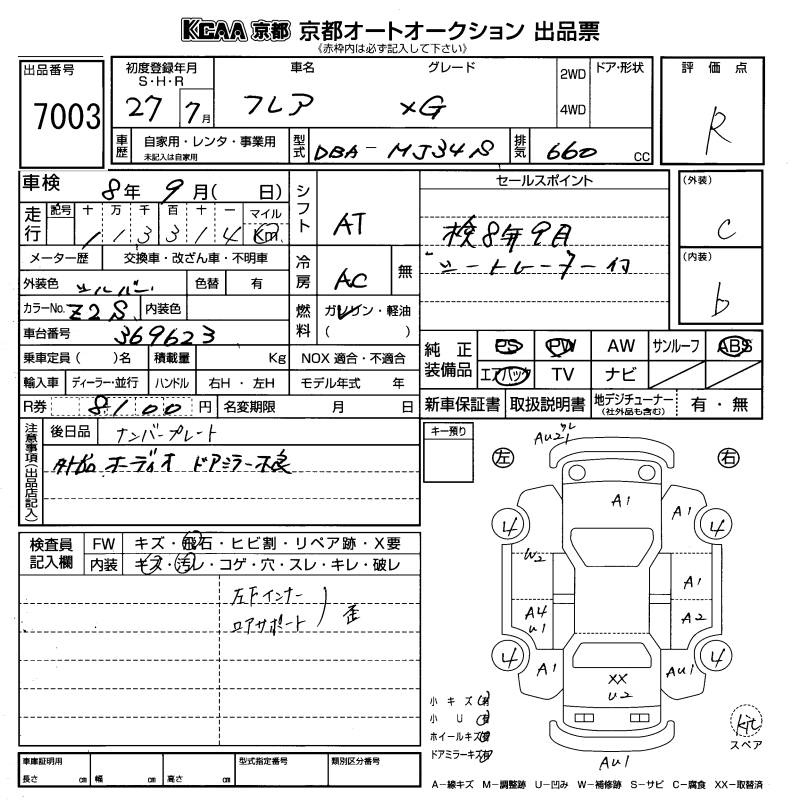 KCAA 京都 京都オートオークション 出品票
《赤枠内は必ず記入して下さい》
出品番号
7003
初度登録年月
S・H・R
27 7月
車名
フレア
グレード
XG
2WD
4WD
ドア・形状
評価点
R
車歴
自家用・レンタ・事業用
未記入は自家用
型式
DBA-MJ34S
排気
660 cc
車検 8年 9月( 日)
走行
記号 十 万 千 百 十 一 マイル
1 1 3 3 1 4 Km
メーター歴 交換車・改ざん車・不明車
外装色 シルバー 色替 有
カラーNo. Z2S 内装色
車台番号 369623
乗車定員( )名 積載量 Kg NOX 適合・不適合
輸入車 ディーラー・並行 ハンドル 右H・左H モデル年式 年
R券 8100円 名変期限 月 日
シフト AT
冷房 AC 無
燃料 ガソリン・軽油
( )
セールスポイント
検8年9月
シートヒーター付
(外装)
C
(内装)
b
純正装備品
PS PW AW サンルーフ ABS
エアバック TV ナビ
新車保証書 取扱説明書 地デジチューナー
(社外品も含む)
有・無
注意事項(出品店記入)
後日品 ナンバープレート
外品オーディオ ドアミラー不良
キー預り
検査員記入欄
FW キズ・飛石・ヒビ割・リペア跡・X要
内装 キズ・汚レ・コゲ・穴・スレ・キレ・破レ
左Fインナー
ロアサポート
歪
左
右
AU21
A1
A1
4
4
W2
A1
A4
U1
A2
4
4
A1
XX
U2
AU1
AU1
小キズ(有)
小U(有)
ホイールキズ(有)
ドアミラーキズ(有)
kit
スペア
車庫証明用
長さ cm 幅 cm 高さ cm
型式指定番号
類別区分番号
A−線キズ M−調整跡 U−凹み W−補修跡 S−サビ C−腐食 XX−取替済